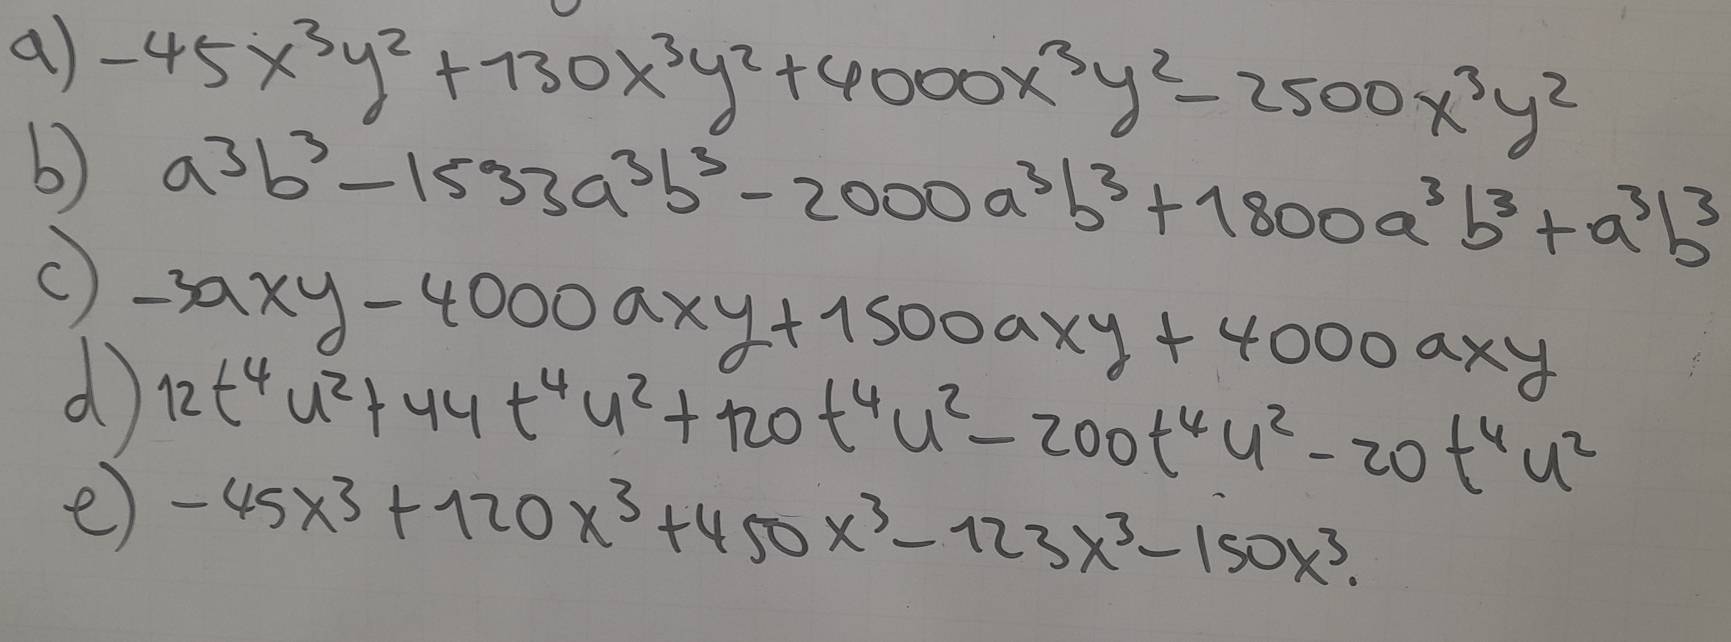 a) -45x³y² + 130x³y² + 4000x³y² - 2500x³y²
b) a³b³ - 1533a³b³ - 2000a³b³ + 1800a³b³ + a³b³
c) -3axy - 4000axy + 1500axy + 4000axy
d) 12t⁴u² + 44t⁴u² + 120t⁴u² - 200t⁴u² - 20t⁴u²
e) -45x³ + 120x³ + 450x³ - 123x³ - 150x³.